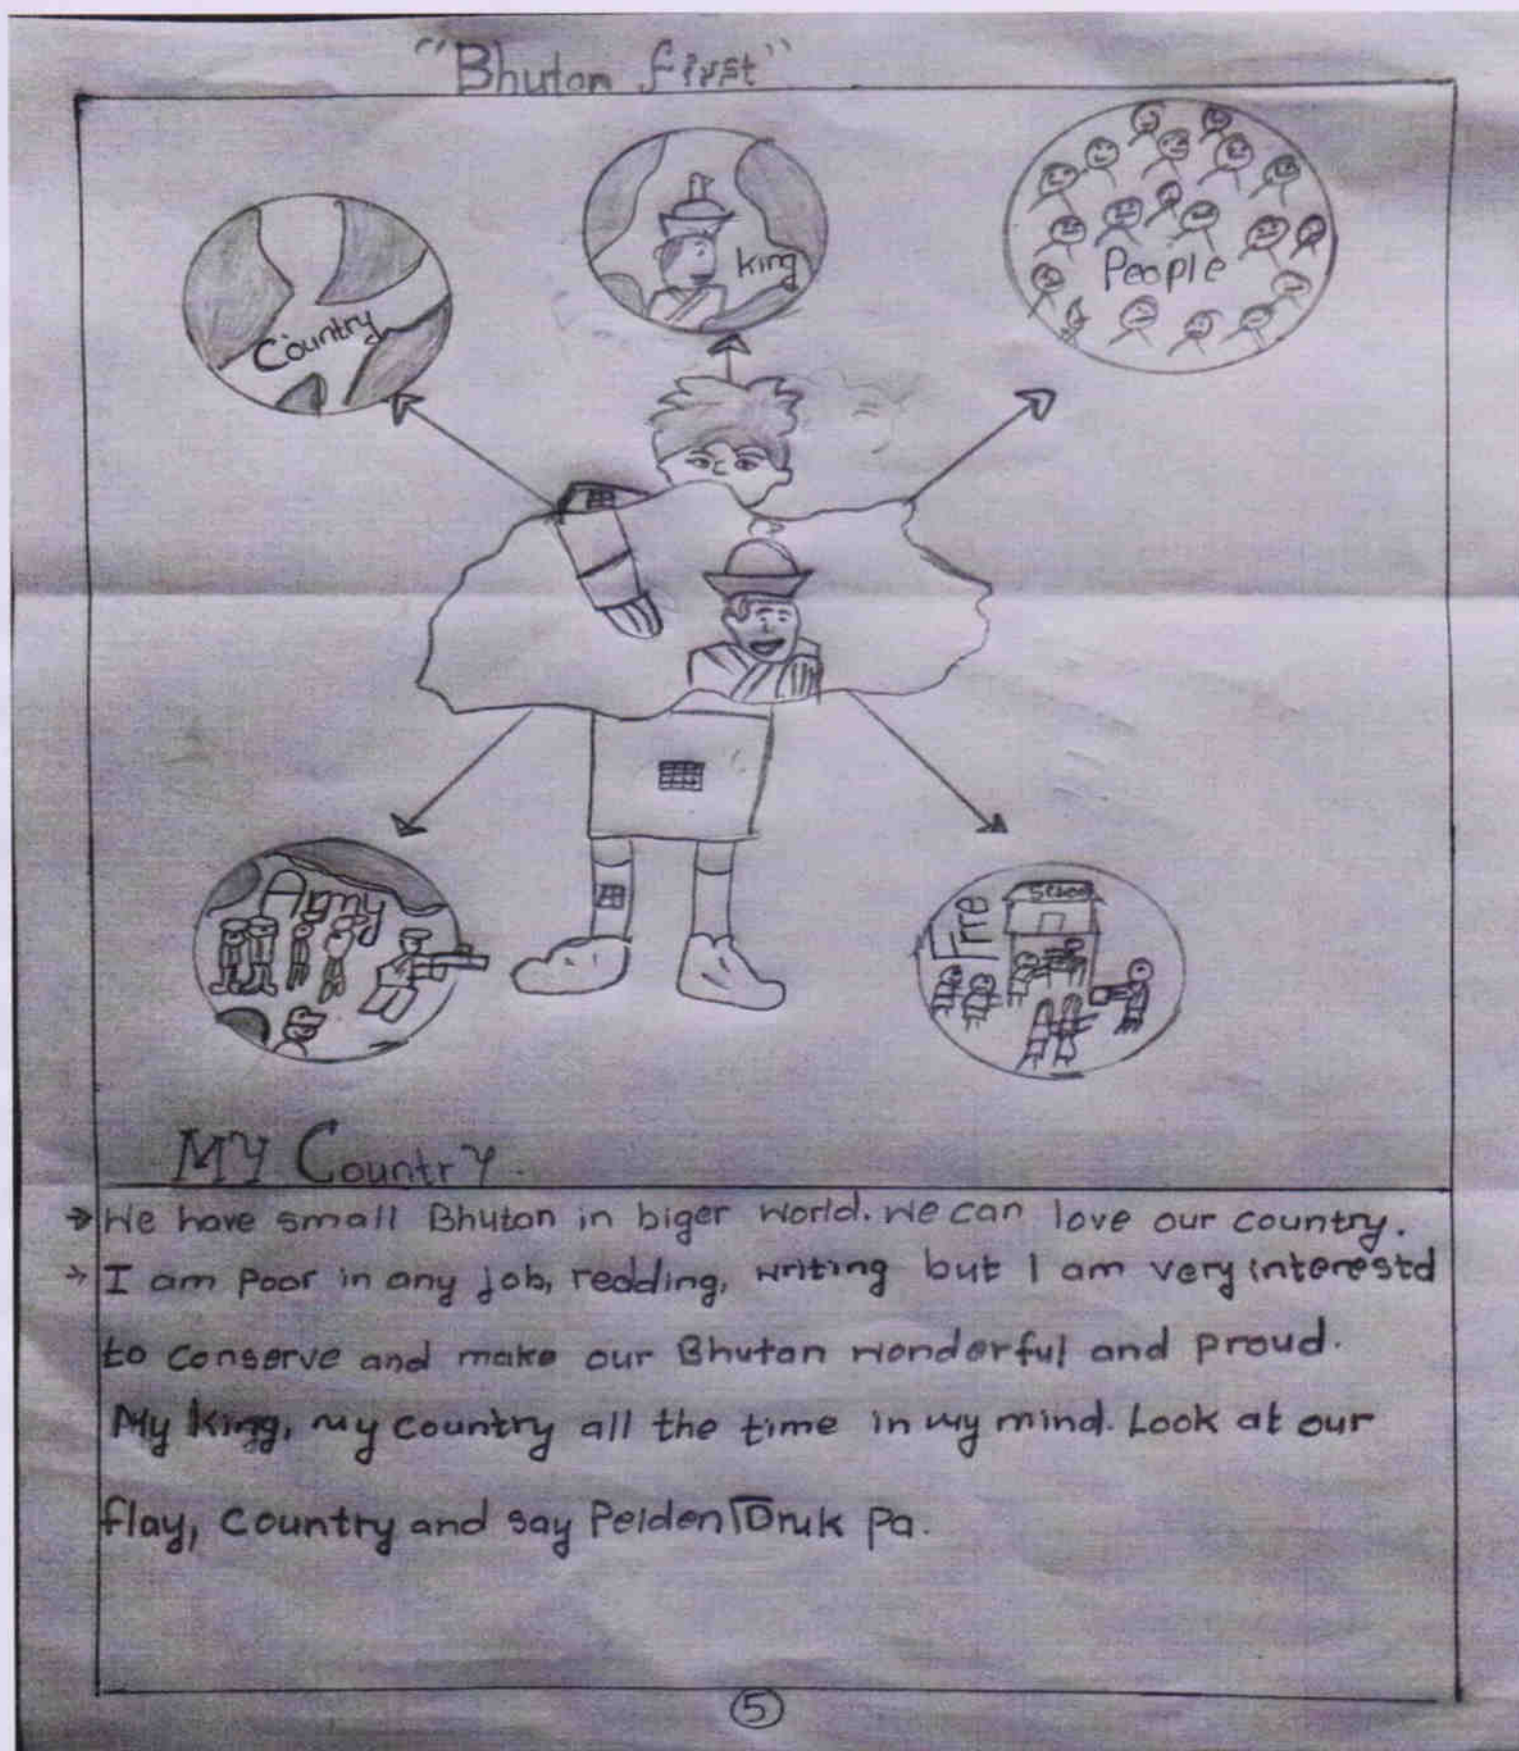 "Bhutan first"
Country
king
People
Army
Frre
School
MY Country.
→ We have small Bhutan in biger world. we can love our country.
→ I am poor in any job, redding, writing but I am very interestd
to conserve and make our Bhutan wonderful and proud.
My king, my country all the time in my mind. Look at our
flay, country and say Pelden Druk pa.
5